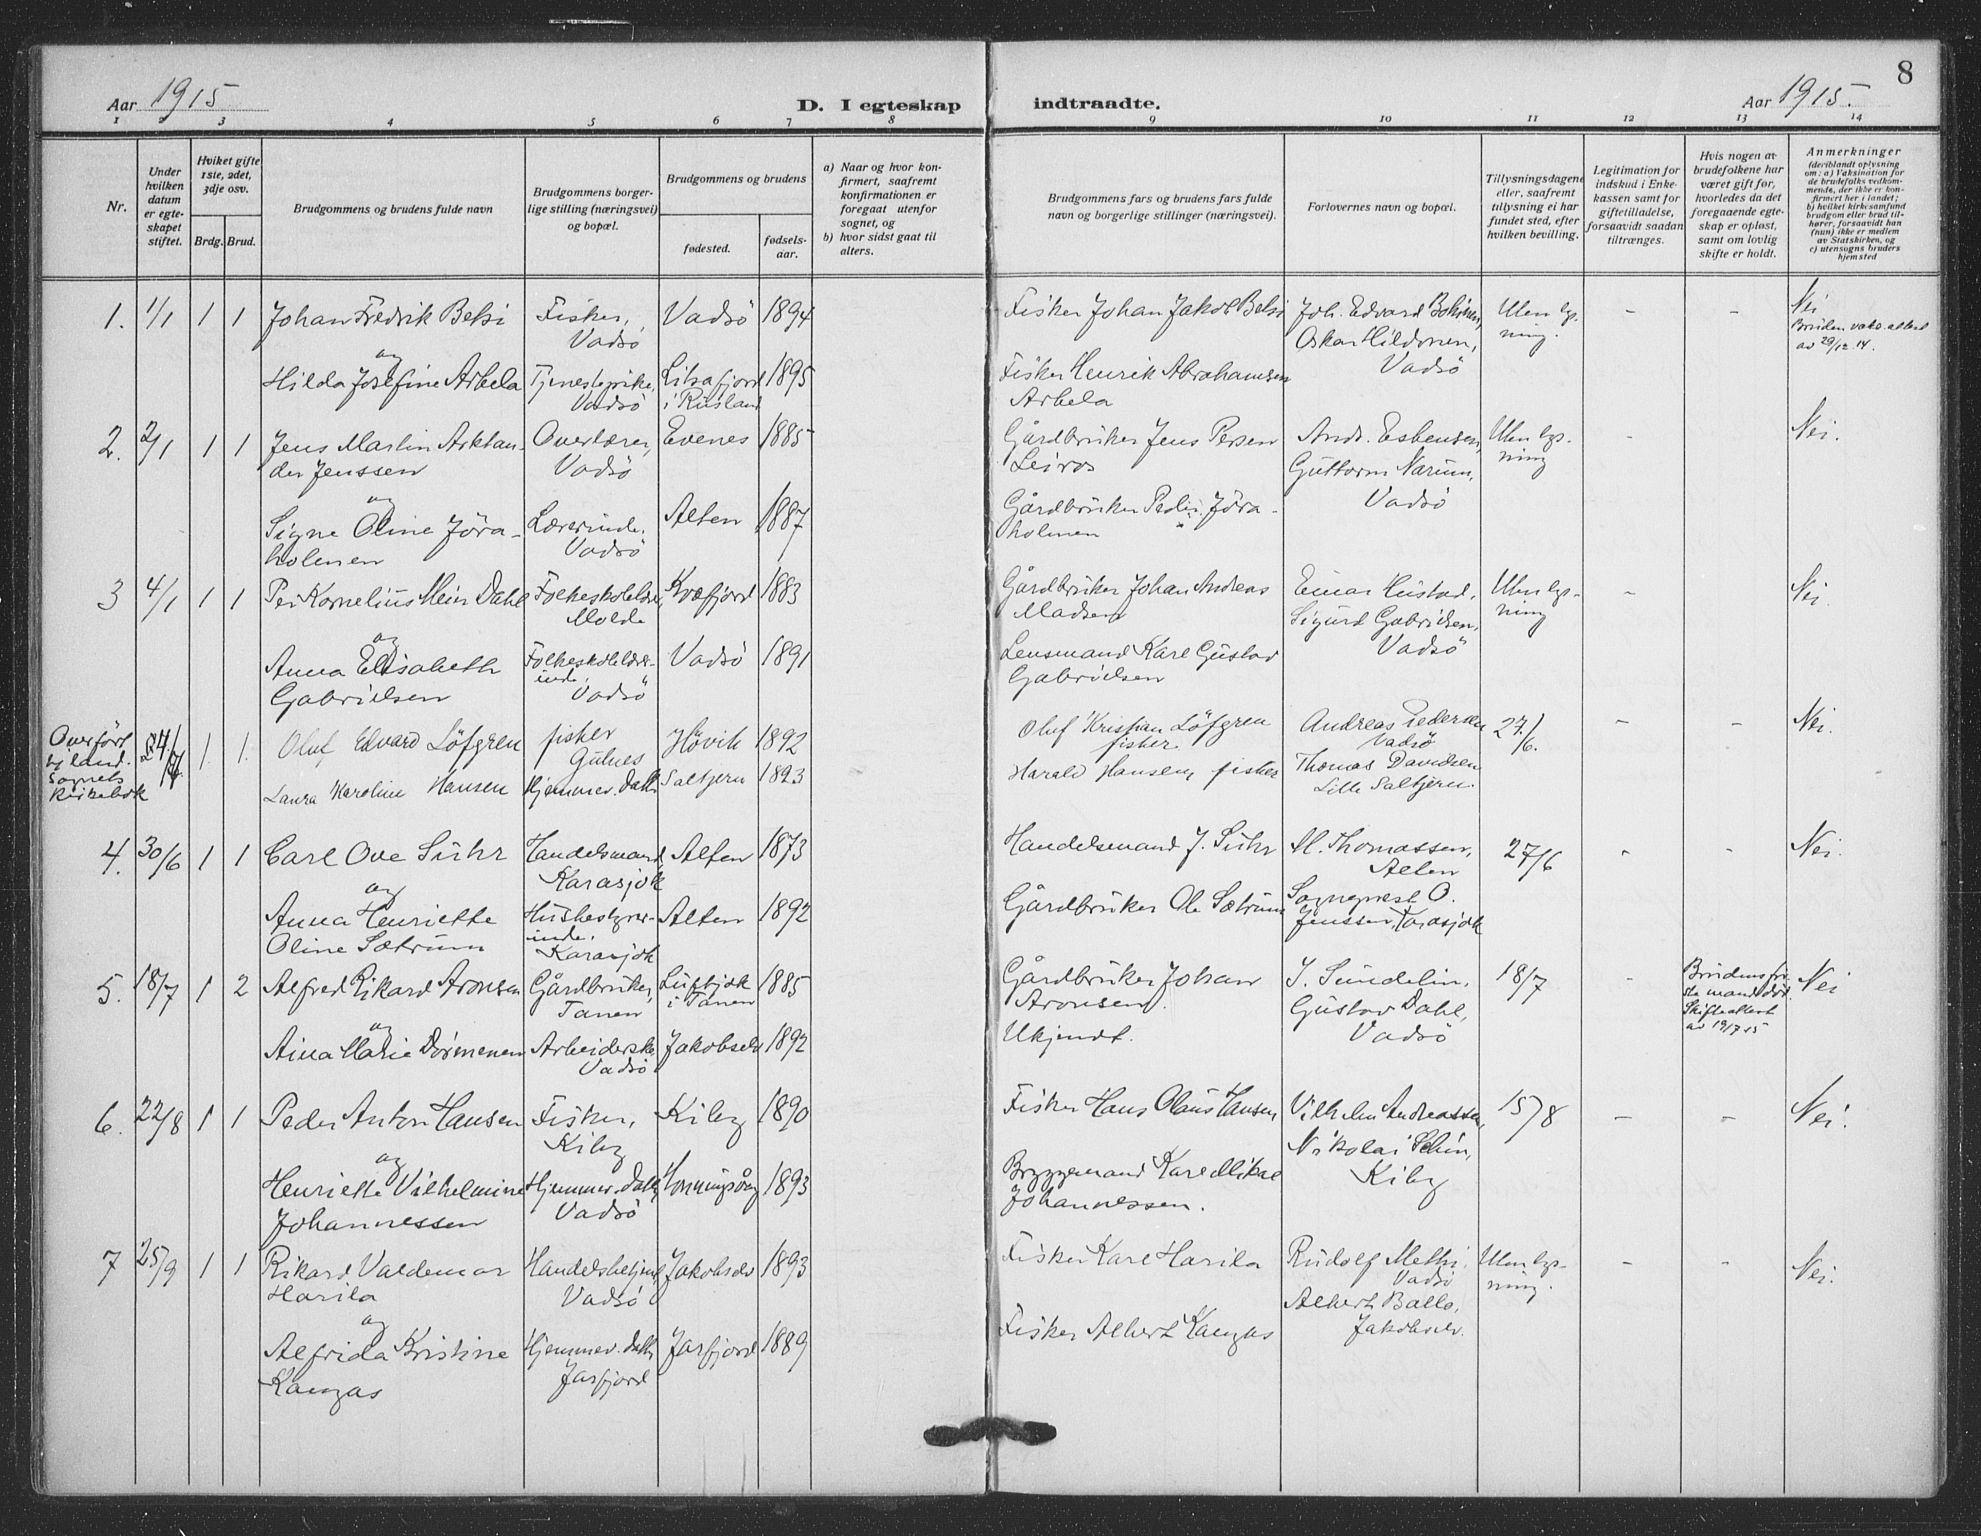 8
Aar 1915
D. I egteskap
indtraadte.
Aar 1915.
1 2 3 4 5 6 7 8 9 10 11 12 13 14
Nr.
Under
hvilken
datum
er egte-
skapet
stiftet.
Hviket gifte
1ste, 2det,
3dje osv.
Brdg. Brud.
Brudgommens og brudens fulde navn
Brudgommens borger-
lige stilling (næringsvei)
og bopæl.
Brudgommens og brudens
fødested.
fødsels-
aar.
a) Naar og hvor kon-
firmert, saafremt
konfirmationen er
foregaat utenfor
sognet, og
b) hvor sidst gaat til
alters.
Brudgommens fars og brudens fars fulde
navn og borgerlige stillinger (næringsvei).
Forlovernes navn og bopæl.
Tillysningsdagene
eller, saafremt
tillysning ei har
fundet sted, efter
hvilken bevilling.
Legitimation for
indskud i Enke-
kassen samt for
giftetilladelse,
forsaavidt saadan
tiltrænges.
Hvis nogen av
brudefolkene har
været gift før,
hvorledes da det
foregaaende egte-
skap er opløst,
samt om lovlig
skifte er holdt.
Anmerkninger
(deriblandt oplysning
om: a) Vaksination for
de brudefolks vedkom-
mende, der ikke er kon-
firmert her i landet;
b) hvilket kirkesamfund
brudgom eller brud til-
hører, forsaavidt han
(hun) ikke er medlem
av Statskirken, og
c) utensogns bruders
hjemsted
1. 1/1 1 1 Johan Fredrik Betsi
Fisker,
Vadsö
Vadsö 1894
Fisker Johan Jakob Betsi
Joh. Edvard
Oskar Hildonen,
Vadsö
Uten lys-
ning.
- -
Nei
Bruden vakc. attest
av 29/12 14.
og
Hilda Josefine Arbela
Tjenestepike,
Vadsö
Litsafjord
i Rusland
1895
Fisker Henrik Abrahamsen
Arbela
2. 2/1 1 1 Jens Martin Arktan-
der Jenssen
Overlærer,
Vadsö
Evenes 1885
Gårdbruker Jens Persen
Leiros
Andr. Esbensen,
Guttorm Narum,
Vadsö
Uten lys-
ning
-
Nei.
og
Signe Oline Jöra-
holmen
Lærerinde,
Vadsö
Alten 1887
Gårdbruker Peder Jöra-
holmen
3 4/1 1 1 Per Kornelius Meier Dahl
Folkeskolelærer,
Molde
Kvæfjord 1883
Gårdbruker Johan Andreas
Madsen
Einar Hustad,
Sigurd Gabrielsen,
Vadsö
Uten lys-
ning
-
Nei.
og
Anna Elisabeth
Gabrielsen
Folkeskolelærer-
inde,
Vadsö
Vadsö 1891
Lensmand Karl Gustav
Gabrielsen
Overfört
til land-
sognets
kirkebok
24/7 1. 1. Oluf Edvard Löfgren
fisker
Gulnes
Hövik 1892
Oluf Kristian Löfgren
fisker
Andreas Pedersen
Vadsö
27/6.
- -
Nei.
Laura Karoline Hansen
Hjemmev. Datt.
Saltjern 1893
Harald Hansen, fisker
Thomas Davidsen
Lille Saltjern.
4. 30/6 1 1 Carl Ove Suhr
Handelsmand
Karasjok
Alten 1873
Handelsmand J. Suhr
M. Thomassen,
Alten
27/6
- -
Nei.
og
Anna Henriette
Oline Sætrum
Husbestyrer-
inde,
Karasjok
Alten 1892
Gårdbruker Ole Sætrum
Sogneprest O.
Jenssen, Karasjok
5. 18/7 1 2 Alfred Rikard Aronsen
Gårdbruker,
Tanen
Luftjok
i Tanen
1885
Gårdbruker Johan
Aronsen.
J. Sundelin,
Gustav Dahl,
Vadsö
18/7
-
Brudens för-
ste mand död.
Skifteattest
av 19/7 15
Nei
og
Aina Marie Dörmenen
Arbeiderske
Vadsö
Jakobselv 1892
Ukjendt.
6. 22/8 1 1 Peder Anton Hansen
Fisker,
Kiby
Kiby 1890
Fisker Hans Olaus Hansen,
Vilhelm Andreassen,
Nikolai
Kiby
15/8
- -
Nei.
og
Henriette Vilhelmine
Johannessen
Hjemmev. datt,
Vadsö
Honningsvåg 1893
Bryggemand Karl Mikal
Johannessen.
7 25/9 1 1 Rikard Valdemar
Harila
Handelsbetjent,
Vadsö
Jakobselv 1893
Fisker Karl Harila
Rudolf Methi,
Vadsö
Albert Ballo,
Jakobselv.
Uten lys-
ning.
- -
Nei.
og
Alfrida Kristine
Kangas
Hjemmev. datt,
Jarfjord
Jarfjord 1889
Fisker Albert Kangas